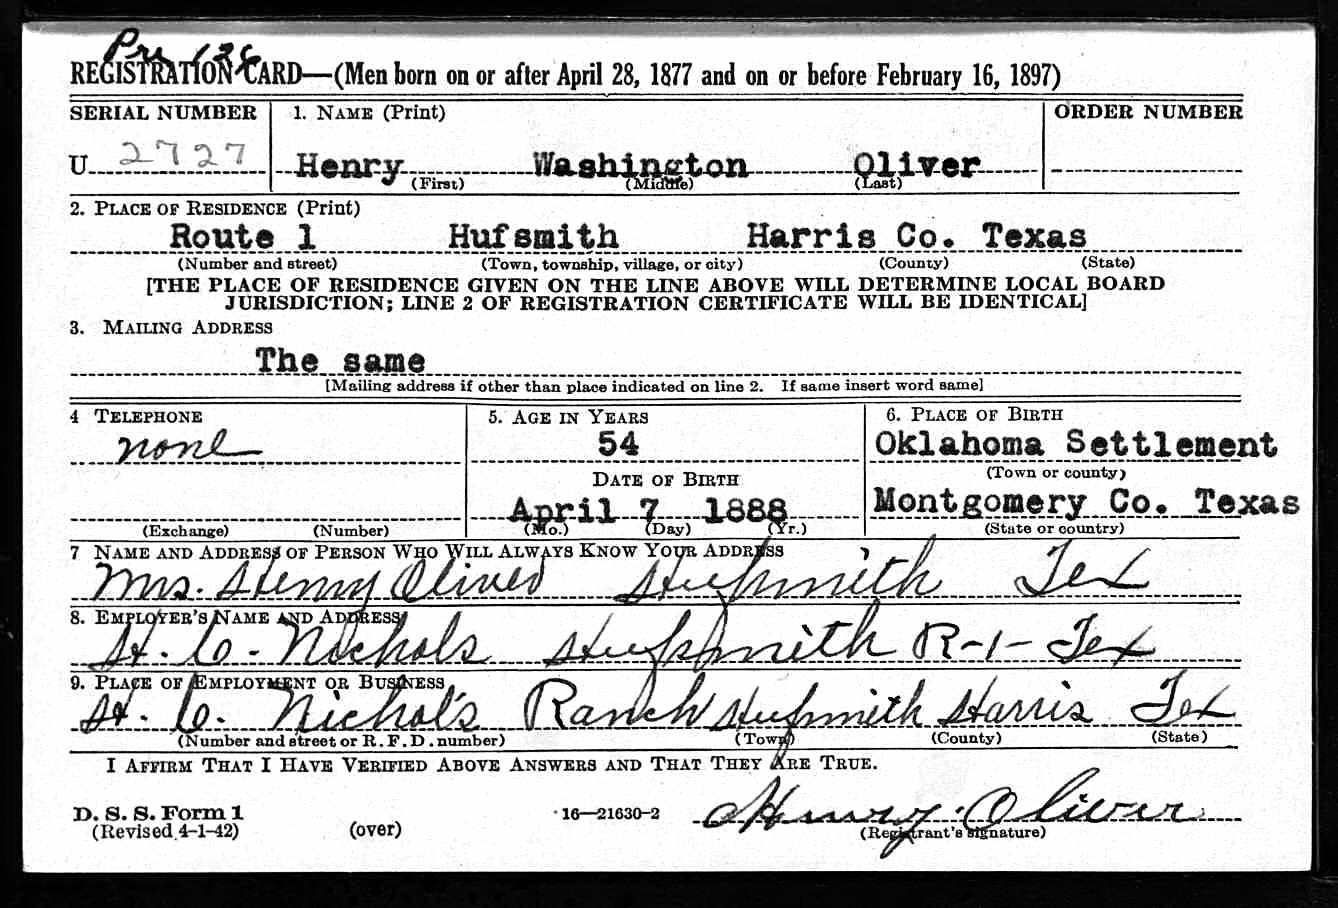 Pre 128
REGISTRATION CARD—(Men born on or after April 28, 1877 and on or before February 16, 1897)
SERIAL NUMBER 1. NAME (Print) ORDER NUMBER
U 2727 Henry Washington Oliver
(First) (Middle) (Last)
2. PLACE OF RESIDENCE (Print)
Route 1 Hufsmith Harris Co. Texas
(Number and street) (Town, township, village, or city) (County) (State)
[THE PLACE OF RESIDENCE GIVEN ON THE LINE ABOVE WILL DETERMINE LOCAL BOARD
JURISDICTION; LINE 2 OF REGISTRATION CERTIFICATE WILL BE IDENTICAL]
3. MAILING ADDRESS
The same
[Mailing address if other than place indicated on line 2. If same insert word same]
4 TELEPHONE 5. AGE IN YEARS 6. PLACE OF BIRTH
none 54 Oklahoma Settlement
DATE OF BIRTH (Town or county)
April 7 1888 Montgomery Co. Texas
(Exchange) (Number) (Mo.) (Day) (Yr.) (State or country)
7 NAME AND ADDRESS OF PERSON WHO WILL ALWAYS KNOW YOUR ADDRESS
Mrs. Henry Oliver Hufsmith Tex
8. EMPLOYER'S NAME AND ADDRESS
H. C. Nichols Hufsmith R-1- Tex
9. PLACE OF EMPLOYMENT OR BUSINESS
H. C. Nichol's Ranch Hufsmith Harris Tex
(Number and street or R. F. D. number) (Town) (County) (State)
I AFFIRM THAT I HAVE VERIFIED ABOVE ANSWERS AND THAT THEY ARE TRUE.
D. S. S. Form 1 16—21630-2 Henry Oliver
(Revised 4-1-42) (over) (Registrant's signature)